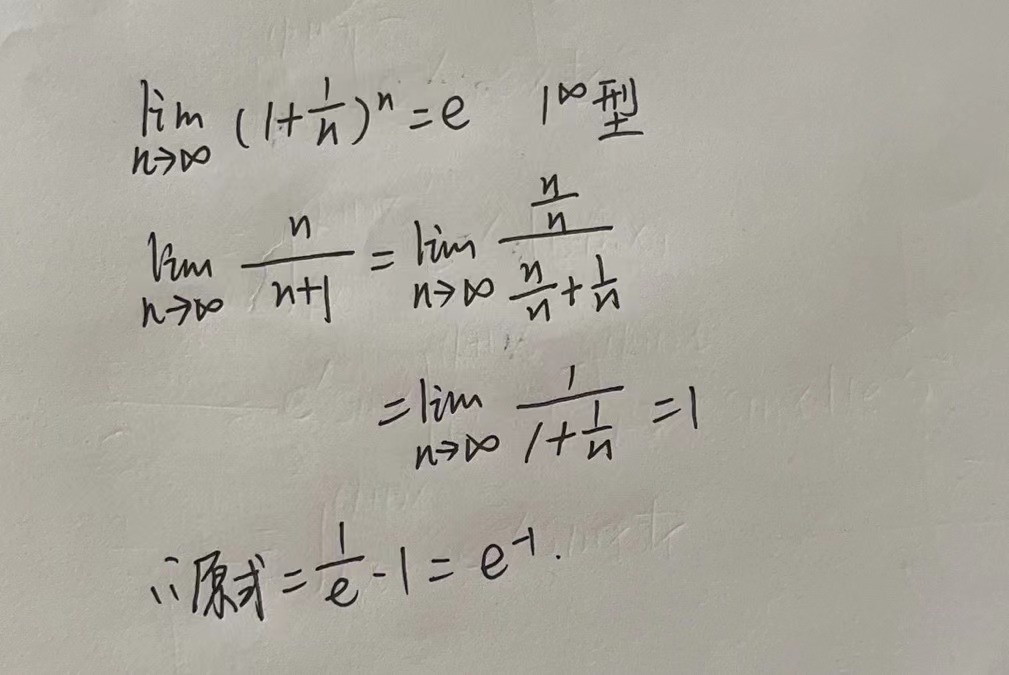 lim_{n→∞} (1+\frac{1}{n})^n = e 1^∞型
lim_{n→∞} \frac{n}{n+1} = lim_{n→∞} \frac{\frac{n}{n}}{\frac{n}{n}+\frac{1}{n}}
= lim_{n→∞} \frac{1}{1+\frac{1}{n}} = 1
∴原式 = \frac{1}{e} - 1 = e^{-1}.